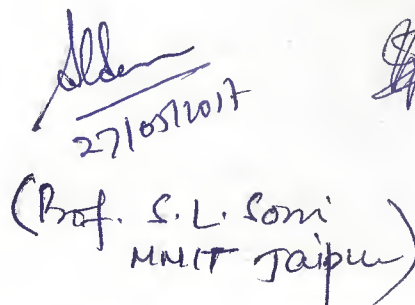 27/05/2017
(Prof. S. L. Soni
MNIT Jaipur)